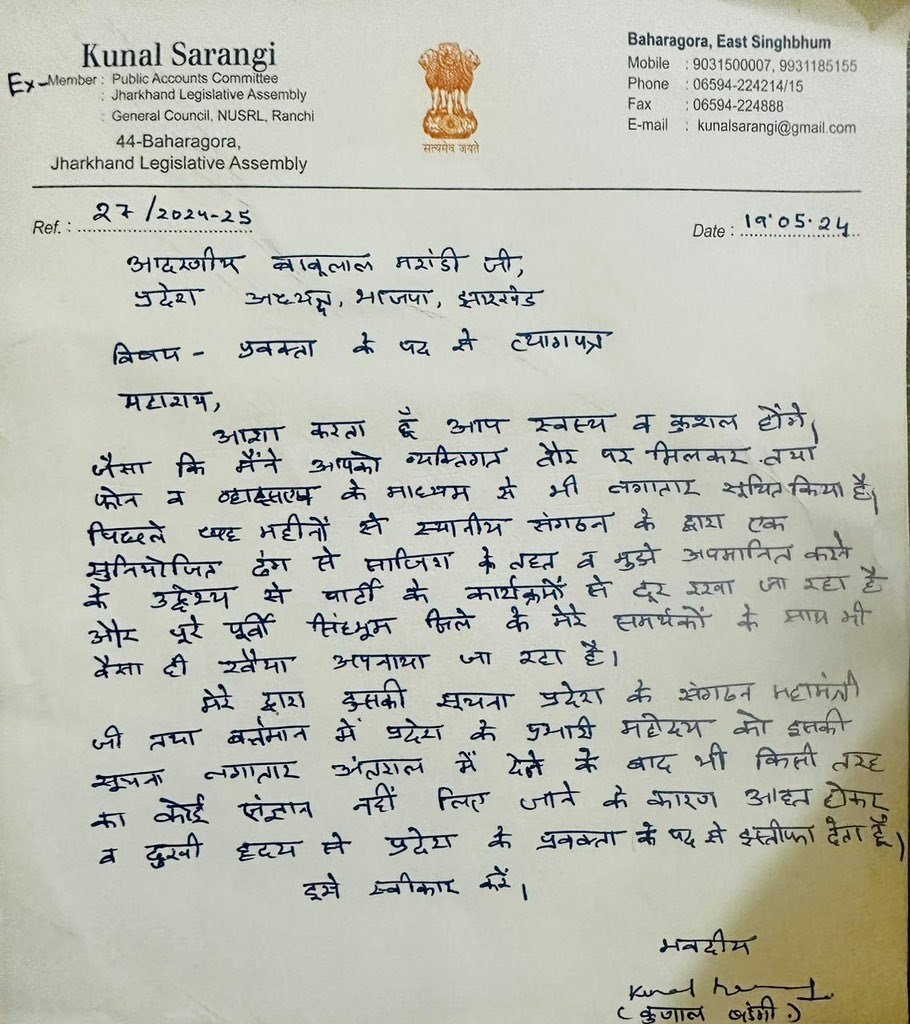 Kunal Sarangi
Ex-Member : Public Accounts Committee
: Jharkhand Legislative Assembly
: General Council, NUSRL, Ranchi
44-Baharagora,
Jharkhand Legislative Assembly
सत्यमेव जयते
Baharagora, East Singhbhum
Mobile : 9031500007, 9931185155
Phone : 06594-224214/15
Fax : 06594-224888
E-mail : kunalsarangi@gmail.com
Ref. : 27/2024-25
Date : 19.05.24
आदरणीय बाबूलाल मरांडी जी,
प्रदेश अध्यक्ष, भाजपा, झारखंड
विषय - प्रवक्ता के पद से त्यागपत्र
महाशय,
आशा करता हूँ आप स्वस्थ व कुशल होंगे,
जैसा कि मैंने आपको व्यक्तिगत तौर पर मिलकर तथा
फोन व व्हाट्सएप के माध्यम से भी लगातार सूचित किया है।
पिछले छह महीनों से स्थानीय संगठन के द्वारा एक
सुनियोजित ढंग से साजिश के तहत व मुझे अपमानित करने
के उद्देश्य से पार्टी के कार्यक्रमों से दूर रखा जा रहा है
और पूरे पूर्वी सिंहभूम जिले के मेरे समर्थकों के साथ भी
वैसा ही रवैया अपनाया जा रहा है।
मेरे द्वारा इसकी सूचना प्रदेश के संगठन महामंत्री
जी तथा वर्त्तमान में प्रदेश के प्रभारी महोदय को इसकी
सूचना लगातार अंतराल में देने के बाद भी किसी तरह
का कोई संज्ञान नहीं लिए जाने के कारण आहत होकर
व दुखी हृदय से प्रदेश के प्रवक्ता के पद से इस्तीफा देता हूँ।
इसे स्वीकार करें।
भवदीय
Kunal
(कुणाल षडंगी)